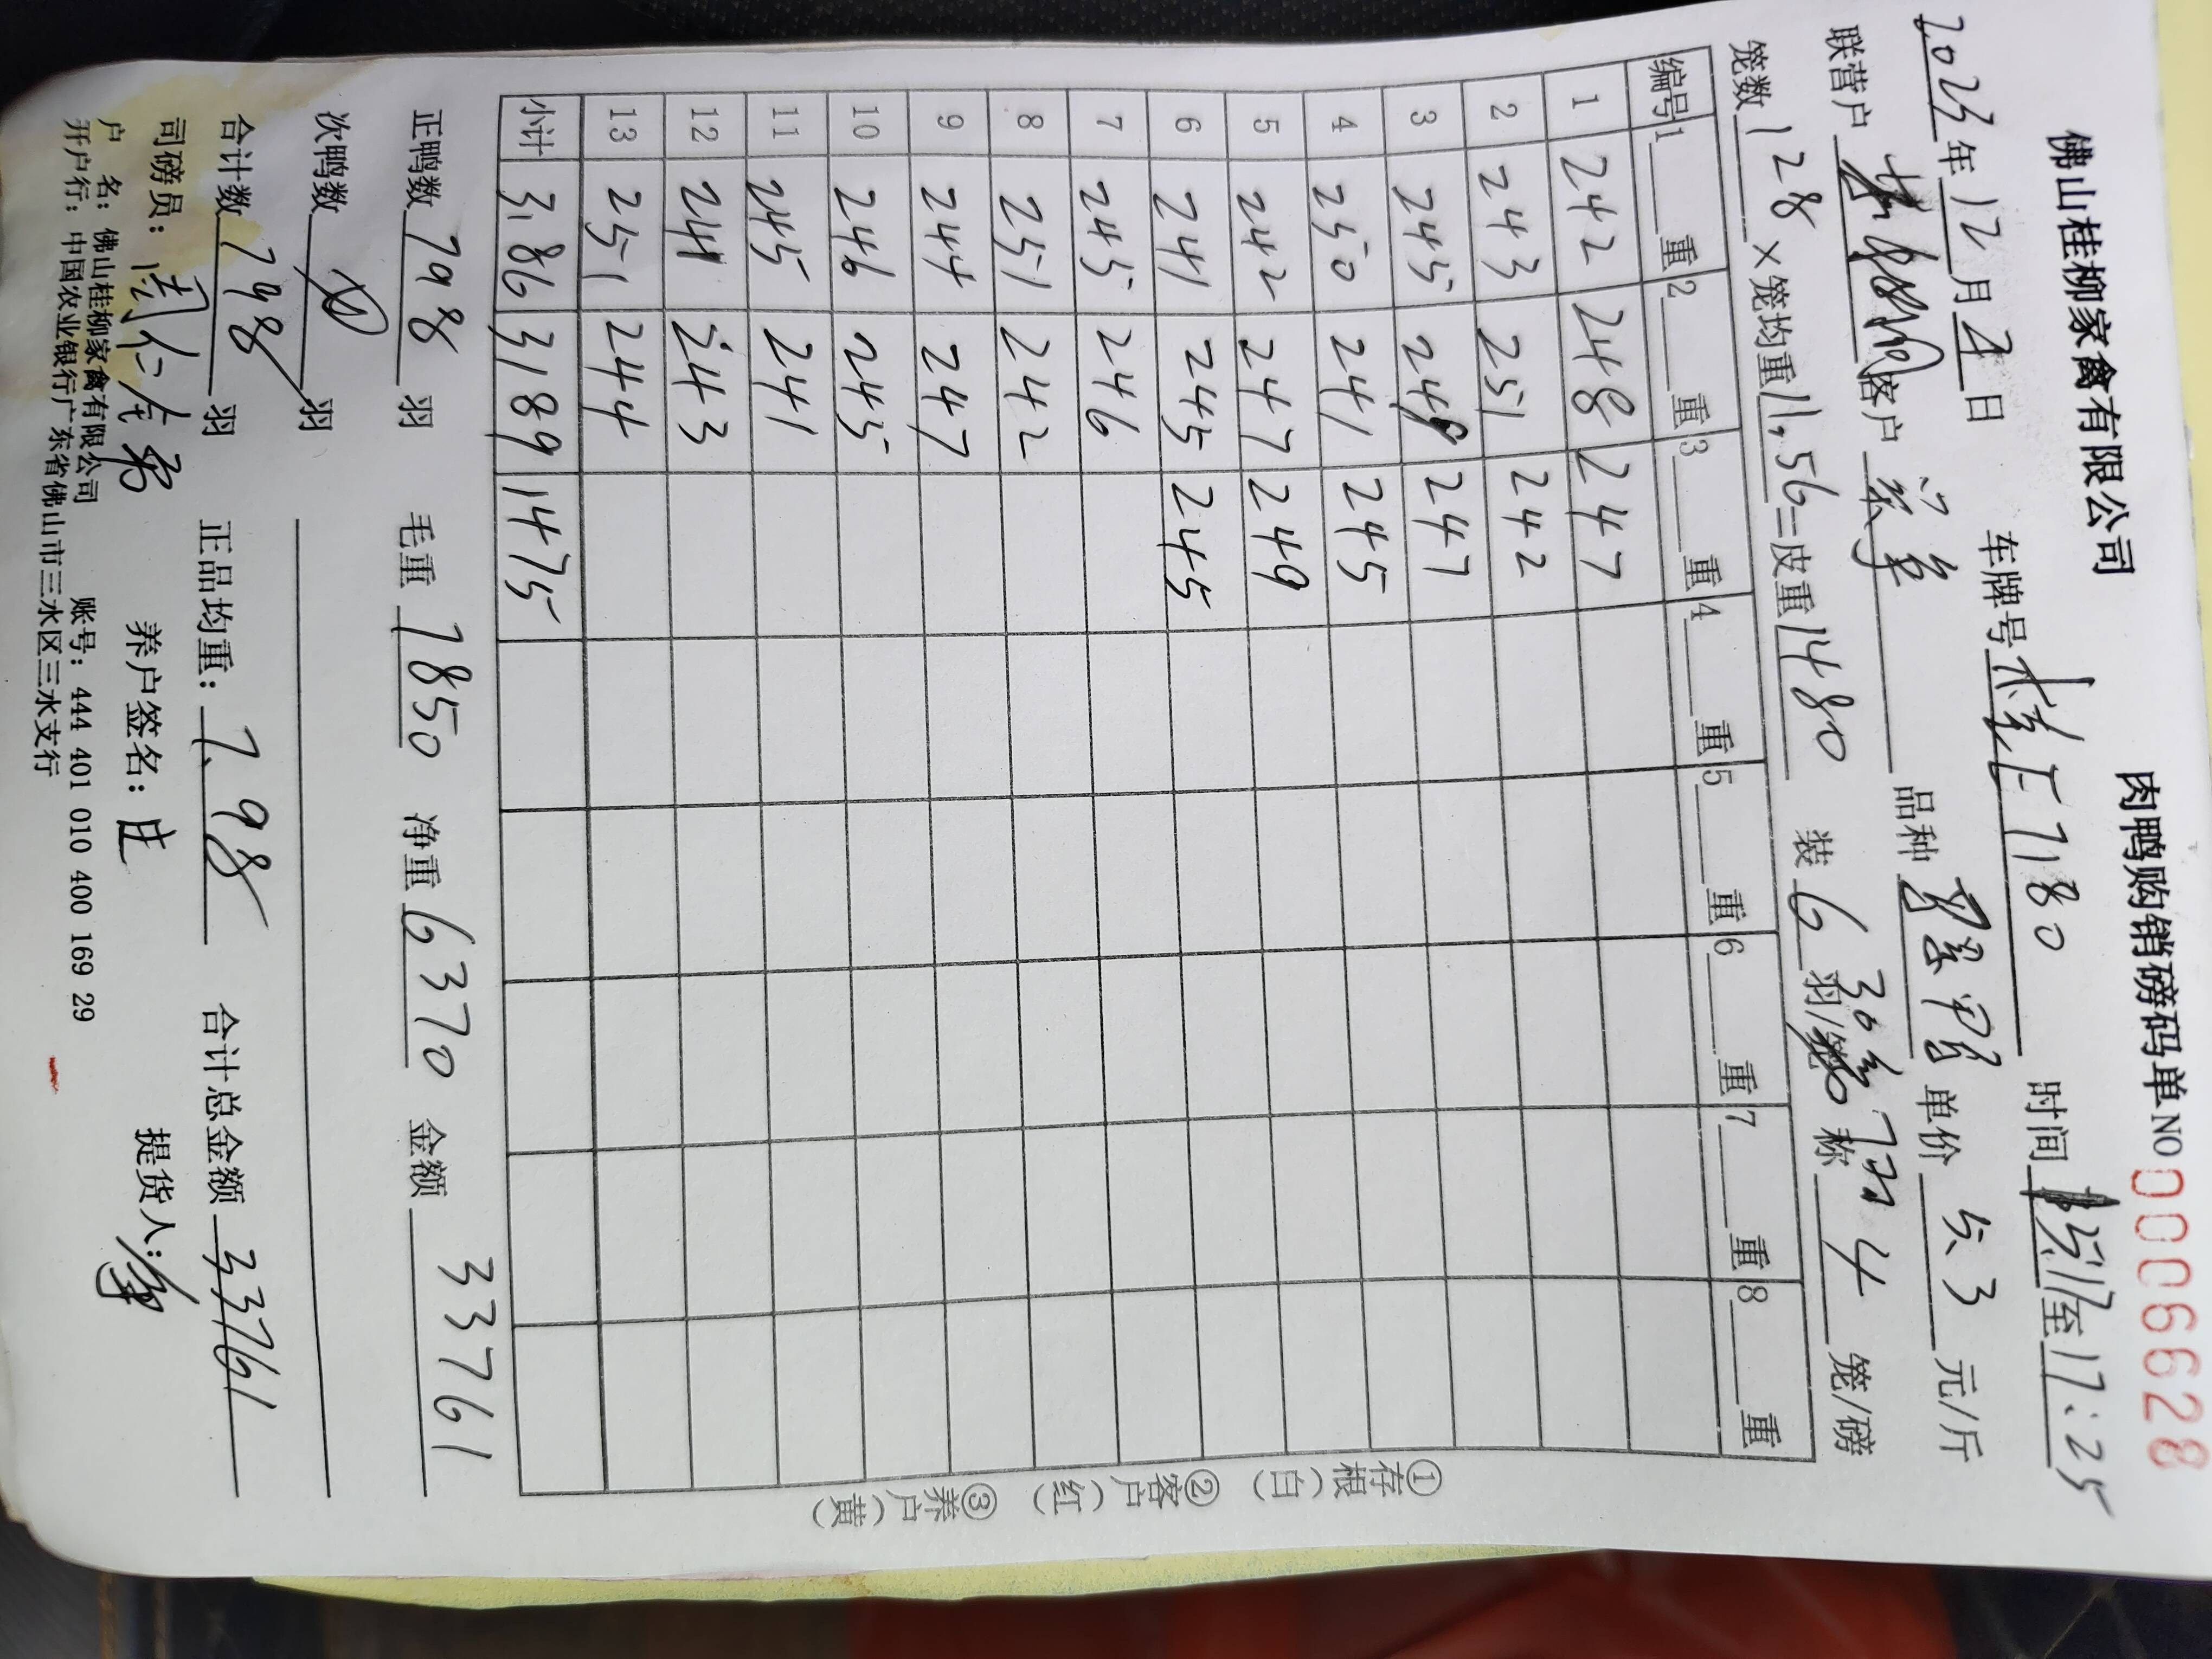 佛山桂柳家禽有限公司 肉鸭购销磅码单 NO 0006628
2023年12月4日 车牌号 桂E7180 时间 15:17至17:25
联营户 客户 品种 单价 5.3 元/斤
笼数 128 ×笼均重 11.56=皮重 1480 装 6 羽/笼 30 称 4 笼/磅
编号 1 重 2 重 3 重 4 重 5 重 6 重 7 重 8 重
1 242 248 247
2 243 251 242
3 245 249 247
4 250 241 245
5 242 247 249
6 241 245 245
7 245 246
8 251 242
9 244 247
10 246 245
11 245 241
12 241 243
13 251 244
小计 3186 3189 1475
①存根（白） ②客户（红） ③养户（黄）
正鸭数 798 羽 毛重 7850 净重 6370 金额 33761
次鸭数 羽
合计数 798 羽 正品均重： 7.98 合计总金额 33761
司磅员： 养户签名： 提货人：
户 名：佛山桂柳家禽有限公司 账号：444 401 010 400 169 29
开户行：中国农业银行广东省佛山市三水区三水支行